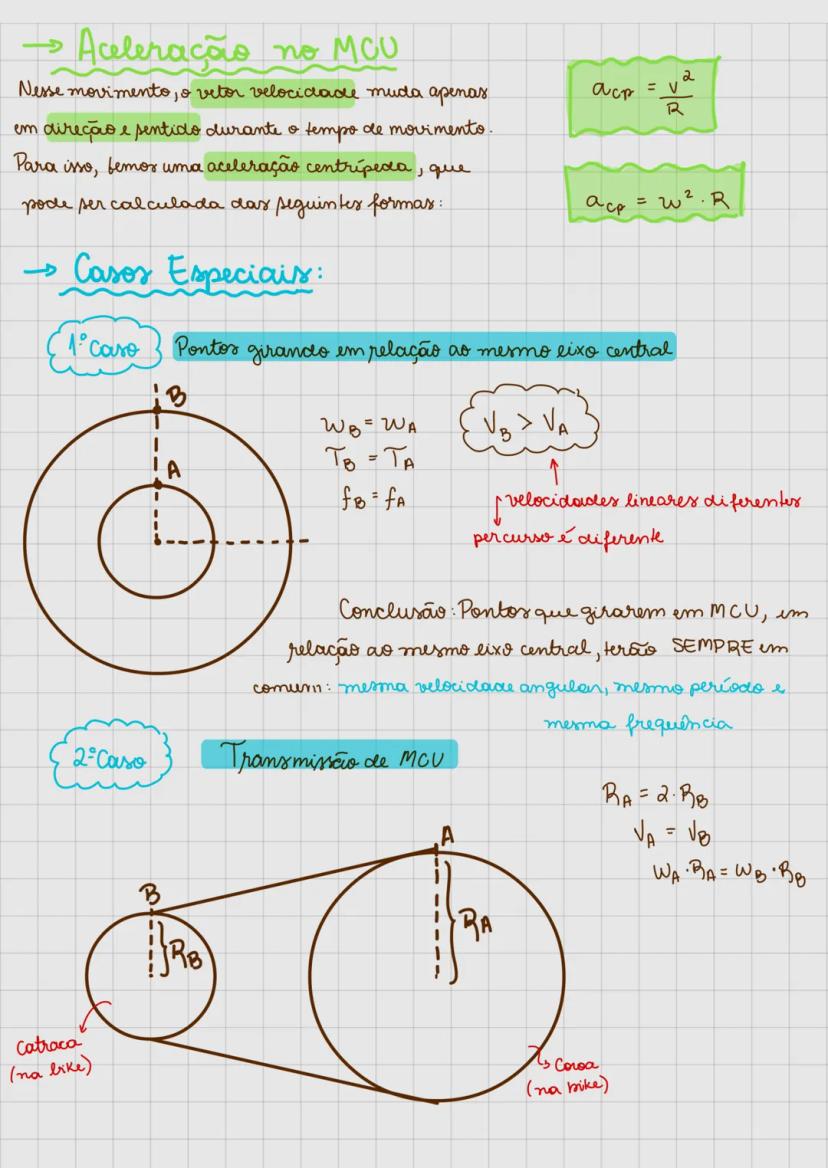 → Aceleração no MCU
Nesse movimento, o vetor velocidade muda apenas
em direção e sentido durante o tempo de movimento.
Para isso, temos uma aceleração centrípeda, que
pode ser calculada das seguintes formas:
a_cp = v²/R
a_cp = w² · R
→ Casos Especiais:
1º Caso
Pontos girando em relação ao mesmo eixo central
B
A
w_B = w_A
T_B = T_A
f_B = f_A
V_B > V_A
velocidades lineares diferentes
percurso é diferente
Conclusão: Pontos que girarem em MCU, em
relação ao mesmo eixo central, terão SEMPRE em
comum: mesma velocidade angular, mesmo período e
mesma frequência
2º Caso
Transmissão de MCU
R_A = 2·R_B
V_A = V_B
w_A·R_A = w_B·R_B
A
B
R_A
R_B
Catraca
(na bike)
Coroa
(na bike)